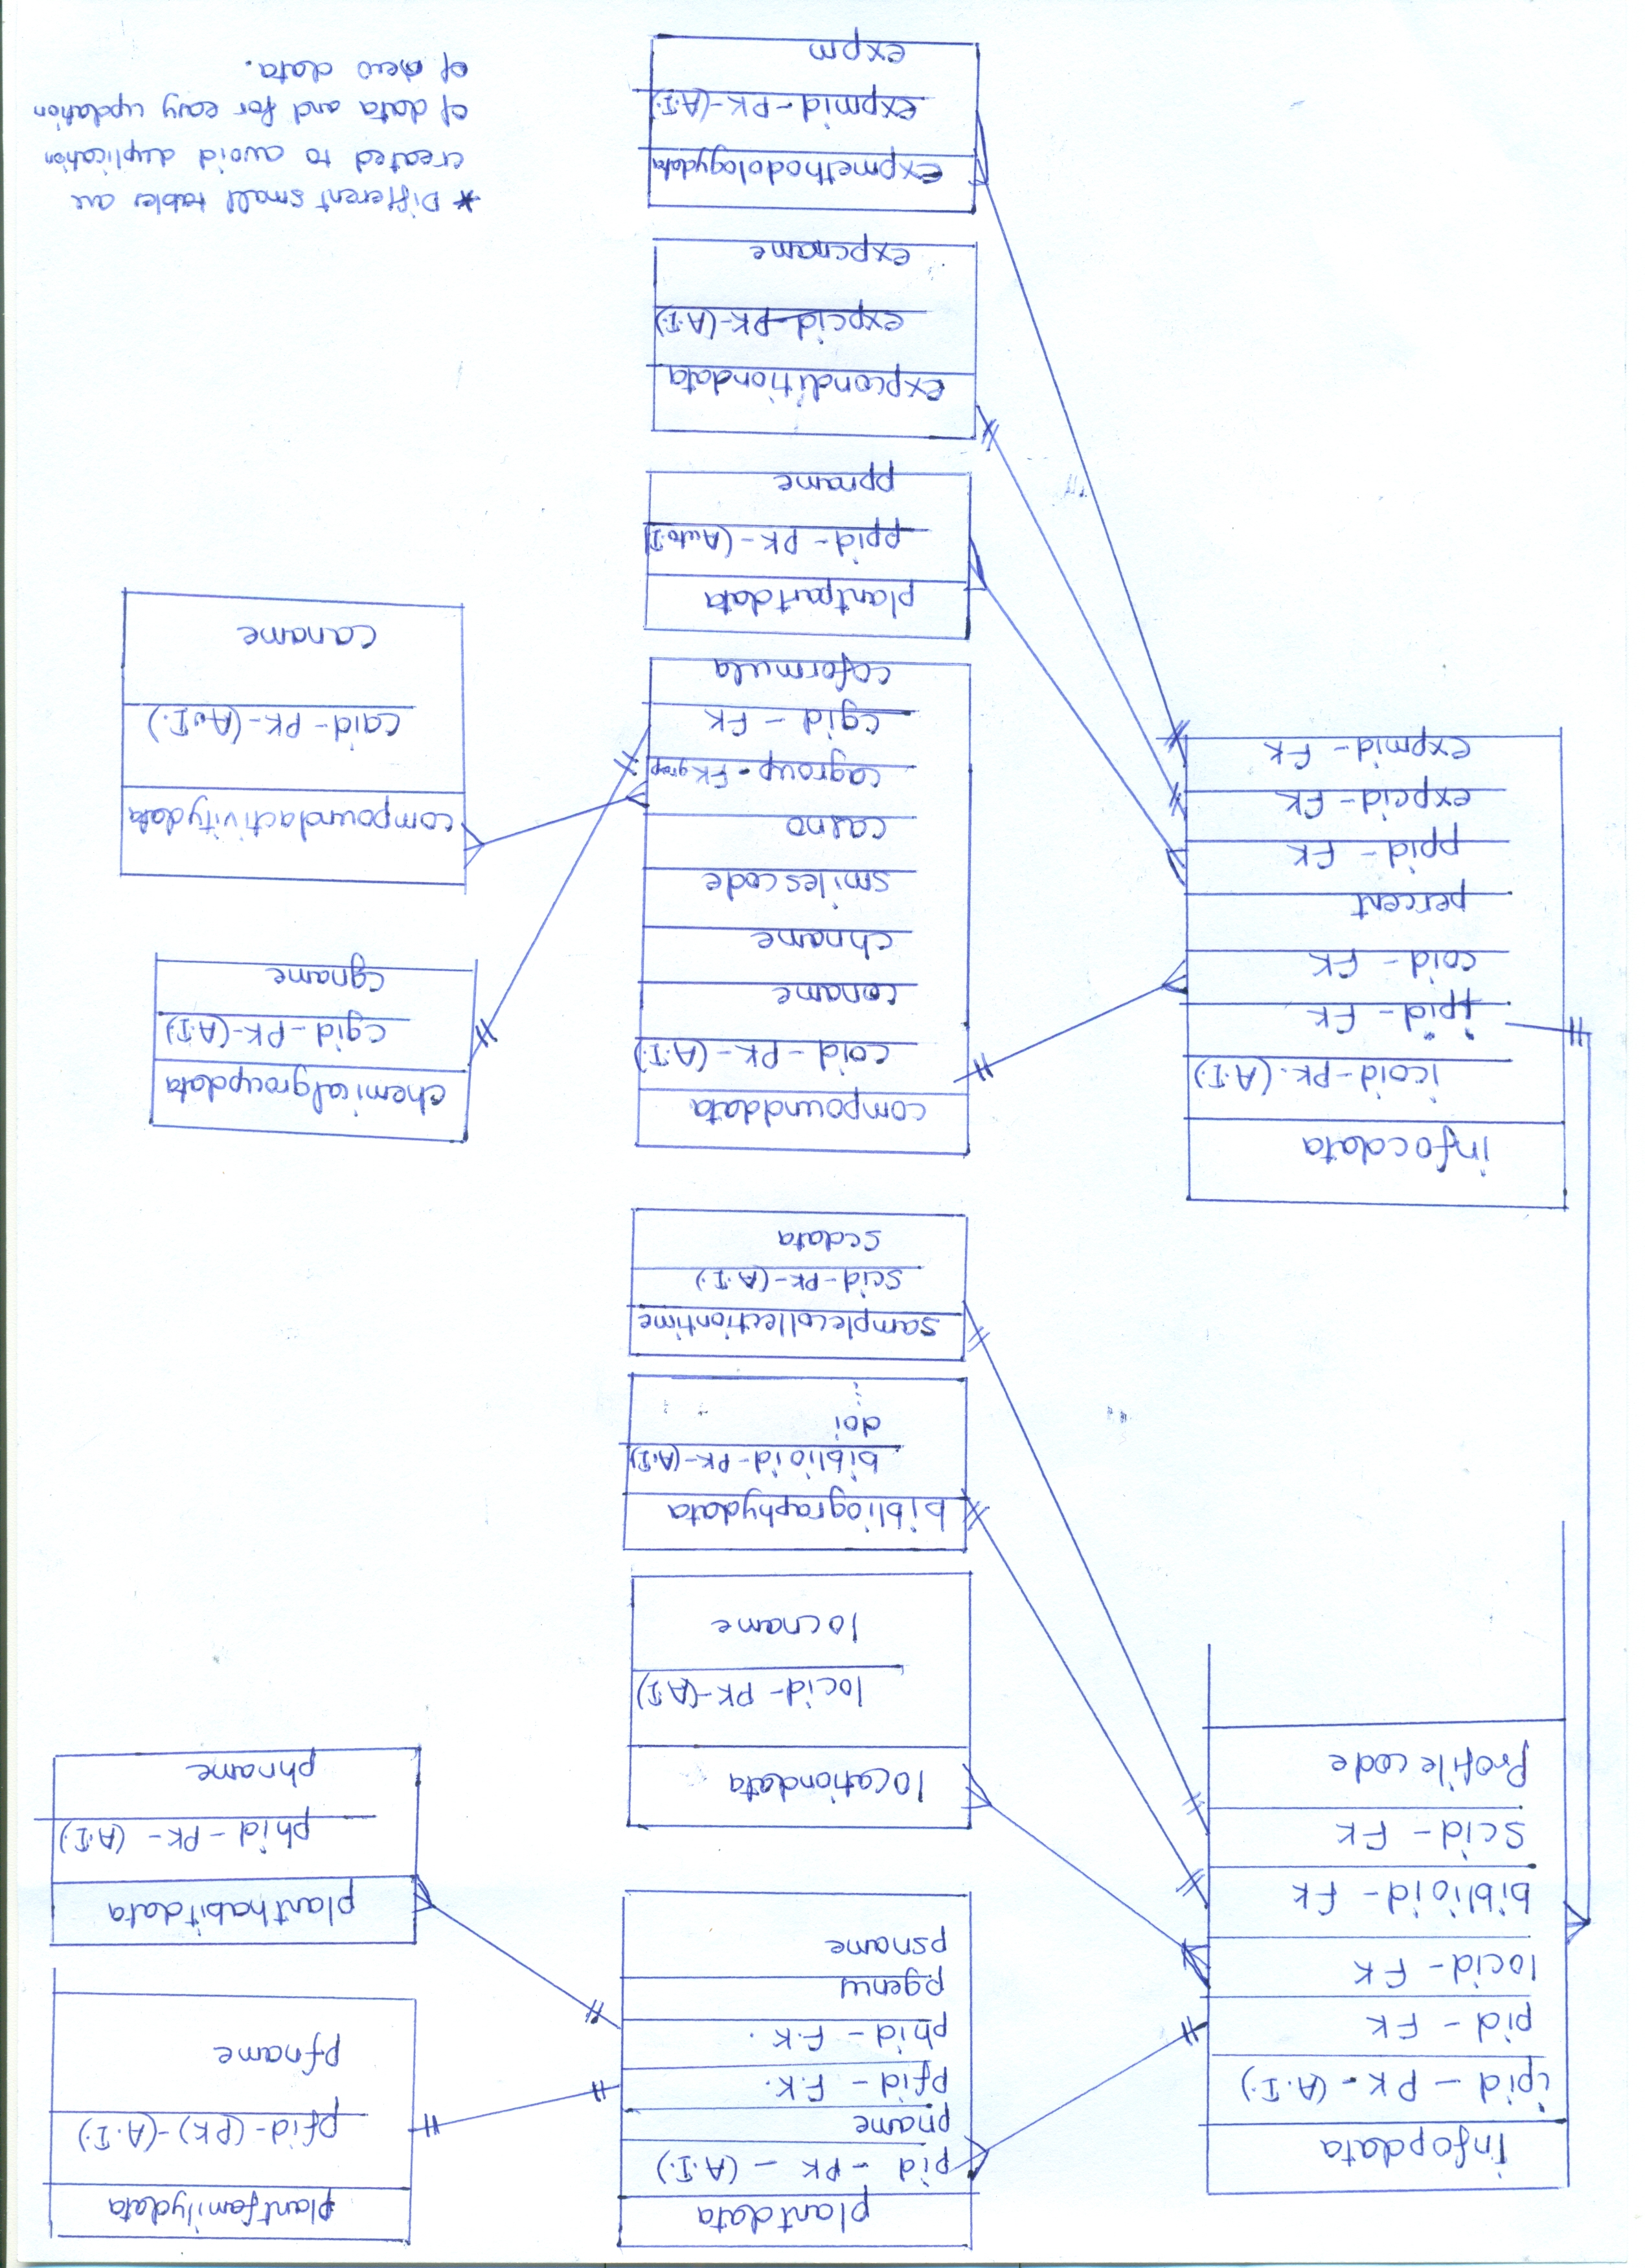 infopdata
ipid - PK - (A.I.)
pid - FK
locid - FK
biblioid - FK
Scid - FK
Profilecode
plantdata
pid - PK - (A.I.)
pname
pfid - F.K.
phid - F.K.
pgenus
psname
plantfamilydata
pfid-(PK)-(A.I.)
pfname
planthabitdata
phid-PK-(A.I)
phname
locationdata
locid-PK-(A.I)
locname
bibliographydata
biblioid-PK-(A.I)
doi
⋮
samplecollectiontime
scid-PK-(A.I.)
scdata
infocdata
icoid-PK.(A.I.)
ipid - FK
coid - FK
percent
ppid - FK
expcid - FK
expmid - FK
compounddata
coid-PK-(A.I.)
coname
chname
smilescode
casno
cagroup - FK grop
cgid - FK
coformula
chemicalgroupdata
cgid-PK-(A.I)
cgname
compoundactivitydata
caid-PK-(A.I.)
caname
plantpartdata
ppid-PK-(Auto.I)
ppname
expconditiondata
expcid-PK-(A.I)
expcname
expmethodologydata
expmid-PK-(A.I)
expm
* Different small tables are
created to avoid duplication
of data and for easy updation
of new data.